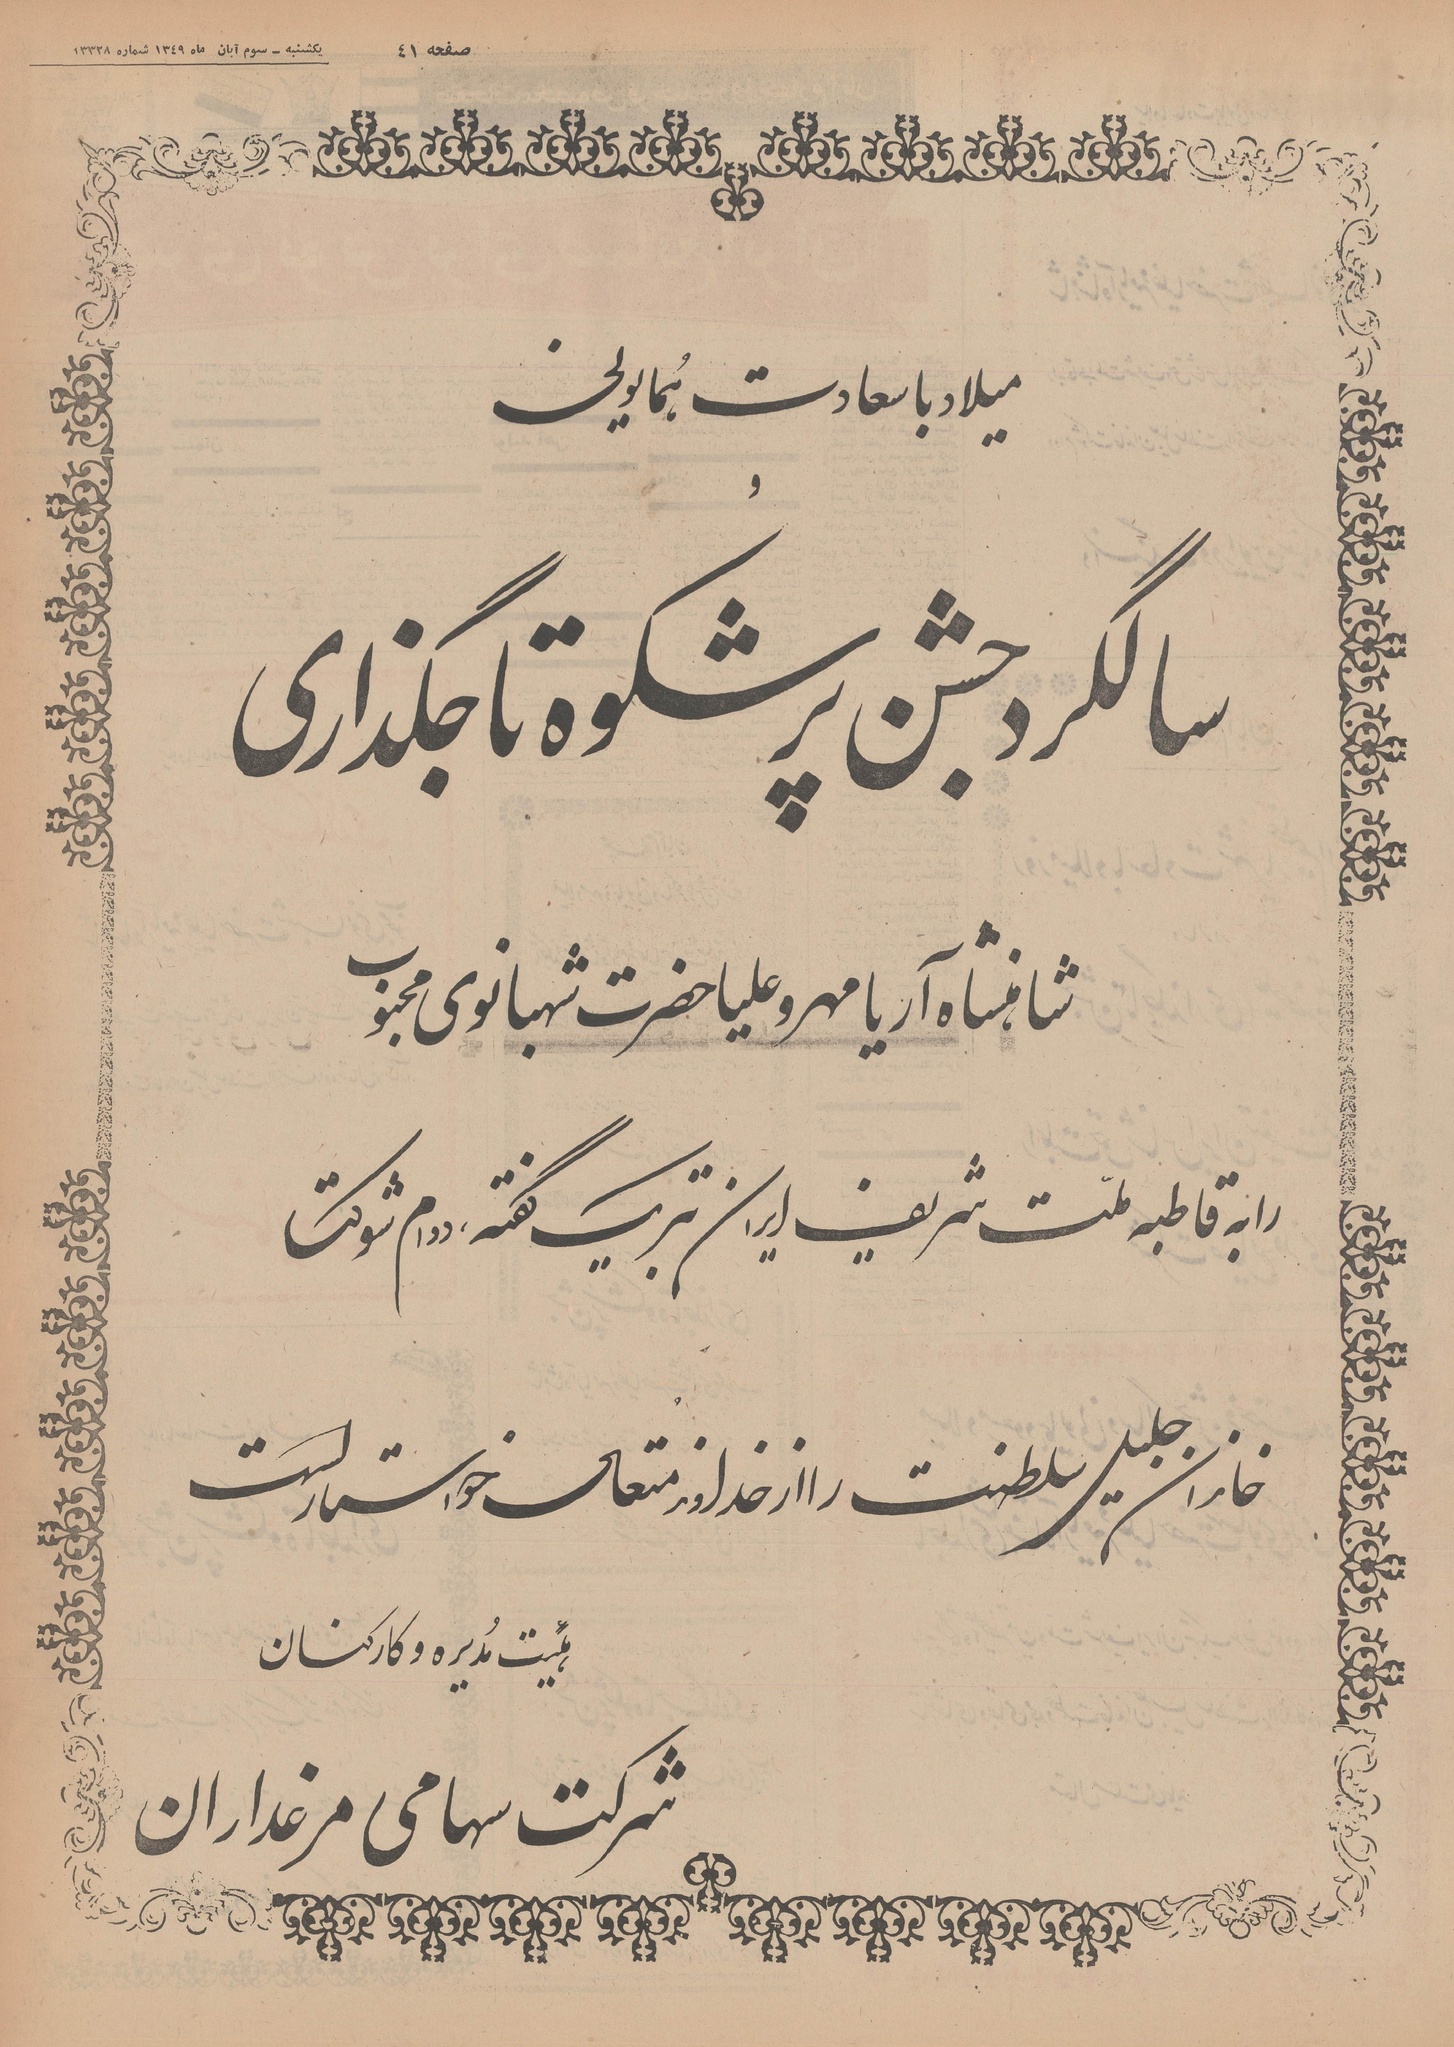 صفحه ٤١
یکشنبه ـ سوم آبان ماه ١٣٤٩ شماره ١٣٣٢٨
میلاد با سعادت همایونی
و
سالگرد جشن پرشکوه تاجگذاری
شاهنشاه آریامهر و علیاحضرت شهبانوی محبوب
را به قاطبه ملّت شریف ایران تبریک گفته، دوام شوکت
خاندان جلیل سلطنت را از خداوند متعال خواستار است
هیئت مُدیره و کارکنان
شرکت سهامی مرغداران